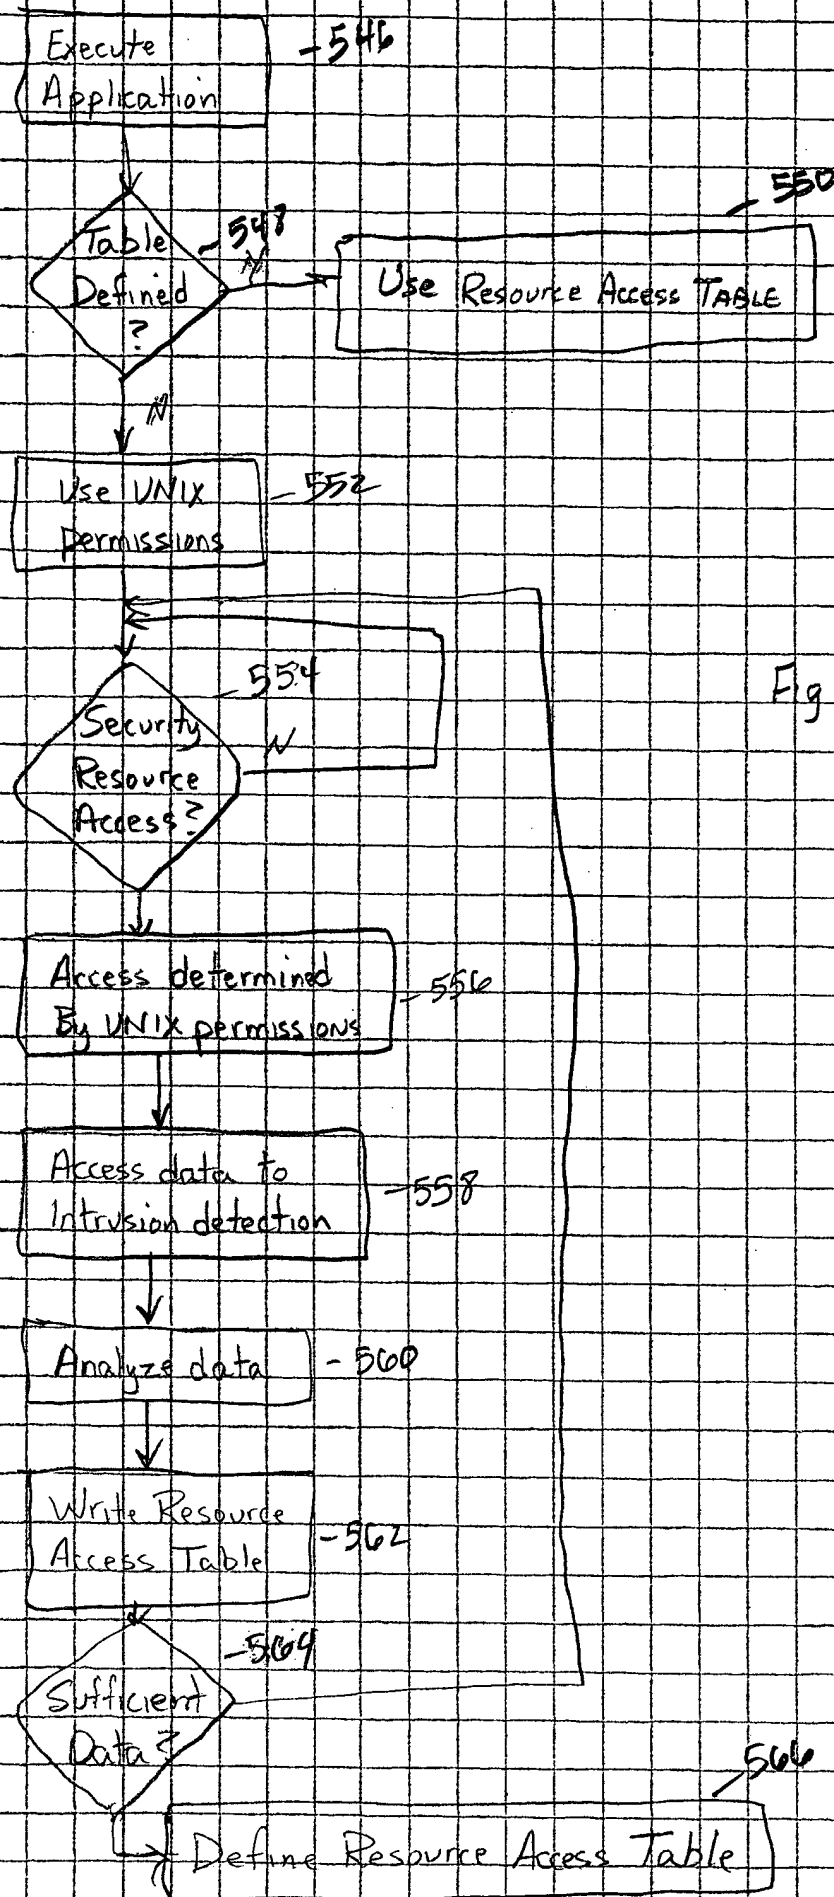 Execute
Application
-546
Table
Defined
?
-548
N
550
Use Resource Access TABLE
N
Use UNIX
permissions
-552
Security
Resource
Access?
-554
N
Fig
Access determined
By UNIX permissions
-556
Access data to
Intrusion detection
-558
Analyze data
-560
Write Resource
Access Table
-562
Sufficient
Data?
-564
566
Define Resource Access Table